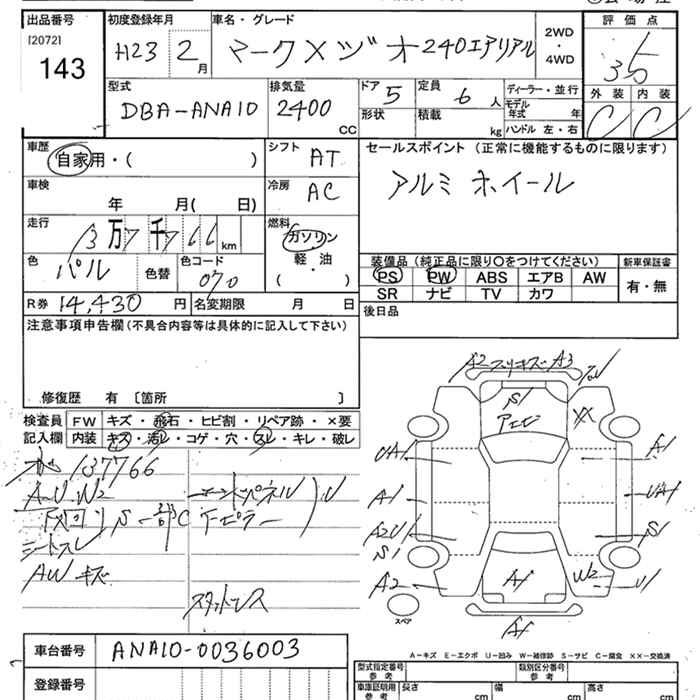 出品番号 初度登録年月 車名・グレード 2WD・4WD 評価点
[2072]
143 H23 2月 マークXジオ 240エアリアル 3.5
型式 排気量 ドア 5 定員 6人 ディーラー・並行 外装 内装
DBA-ANA10 2400cc 形状 積載 kg モデル年式 年 C C
ハンドル 左・右
車歴 自家用・( ) シフト AT セールスポイント (正常に機能するものに限ります)
車検 年 月( 日) 冷房 AC アルミホイール
走行 13万7千766km 燃料 ガソリン
軽・油
( ・ )
色 パール 色替 色コード 070
装備品 (純正品に限り○をつけてください) 新車保証書
PS PW ABS エアB AW 有・無
SR ナビ TV カワ
R券 14,430円 名変期限 月 日 後日品
注意事項申告欄(不具合内容等は具体的に記入して下さい)
修復歴 有 〔箇所 〕
検査員記入欄 FW キズ・飛石・ヒビ割・リペア跡・×要
内装 キズ・汚レ・コゲ・穴・スレ・キレ・破レ
137766
A-U.W2
下回り S-部C
シートスレ
AWキズ
スタットレス
A2 スリキズ A3
S1
XX
UA1 A1
A1 UA1
A2U1 S1
S1
A2 A1 W2 U1
A1
スペア
A-キズ E-エクボ U-凹み W-補修跡 S-サビ C-腐食 XX-交換済
車台番号 ANA10-0036003
型式指定番号 参考 類別区分番号 参考
登録番号 車庫証明用 参考 長さ cm 幅 cm 高さ cm